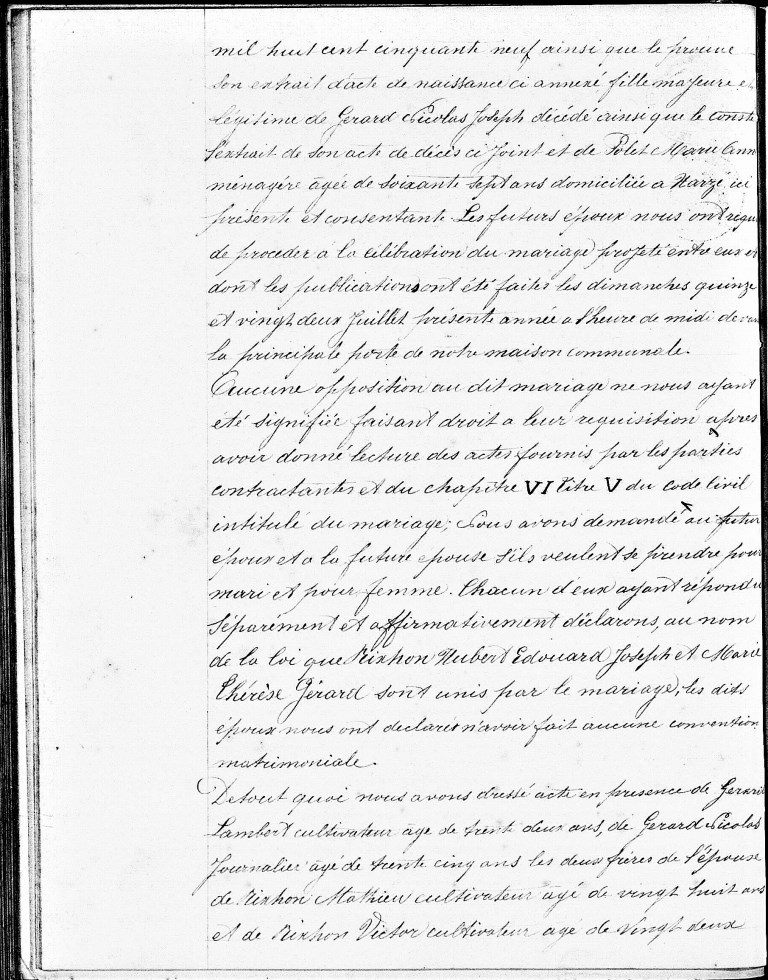 mil huit cent cinquante neuf ainsi que le prouve
son extrait d'acte de naissance ci annexé, fille majeure et
légitime de Gerard Nicolas Joseph décédé ainsi que le conste
l'extrait de son acte de décès ci joint et de Polet Marie Ann
ménagère agée de soixante sept ans domiciliée a Harzé ici
présente et consentante. Les futurs époux nous ont requi
de proceder à la célébration du mariage projeté entre eux et
dont les publications ont été faites les dimanches quinze
et vingt deux Juillet présente année a l'heure de midi devan
la principale porte de notre maison communale.
Aucune opposition au dit mariage ne nous ayant
été signifiée faisant droit a leur requisition apres
avoir donné lecture des actes fournis par les parties
contractantes et du chapitre VI titre V du code Civil
intitulé du mariage; Nous avons demandé au futur
époux et a la future epouse s'ils veulent se prendre pour
mari et pour femme. Chacun d'eux ayant répondu
séparément et affirmativement déclarons, au nom
de la loi que Rixhon Hubert Edouard Joseph et Marie
Thérèse Gérard sont unis par le mariage; les dits
époux nous ont declaré n'avoir fait aucune convention
matrimoniale.
De tout quoi nous avons dressé acte en presence de Gerard
Lambert cultivateur age de trente deux ans, de Gerard Nicolas
Journalier agé de trente cinq ans les deux frères de l'épouse
de Rixhon Mathieu cultivateur agé de vingt huit ans
et de Rixhon Victor cultivateur agé de vingt deux